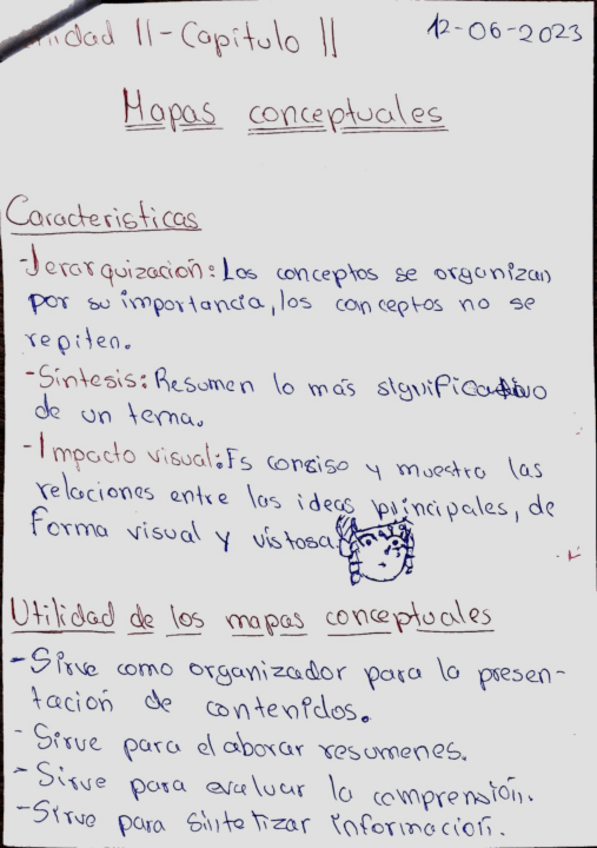 Unidad II-Capitulo II
12-06-2023
Mapas conceptuales
Caracteristicas
-Jerarquización: Los conceptos se organizan
por su importancia, los conceptos no se
repiten.
-Síntesis: Resumen lo más significativo
de un tema.
-Impacto visual: Es consiso y muestra las
relaciones entre las ideas principales, de
forma visual y vistosa.
Utilidad de los mapas conceptuales
-Sirve como organizador para la presen-
tación de contenidos.
-Sirve para elaborar resumenes.
-Sirve para evaluar la comprensión.
-Sirve para sintetizar información.